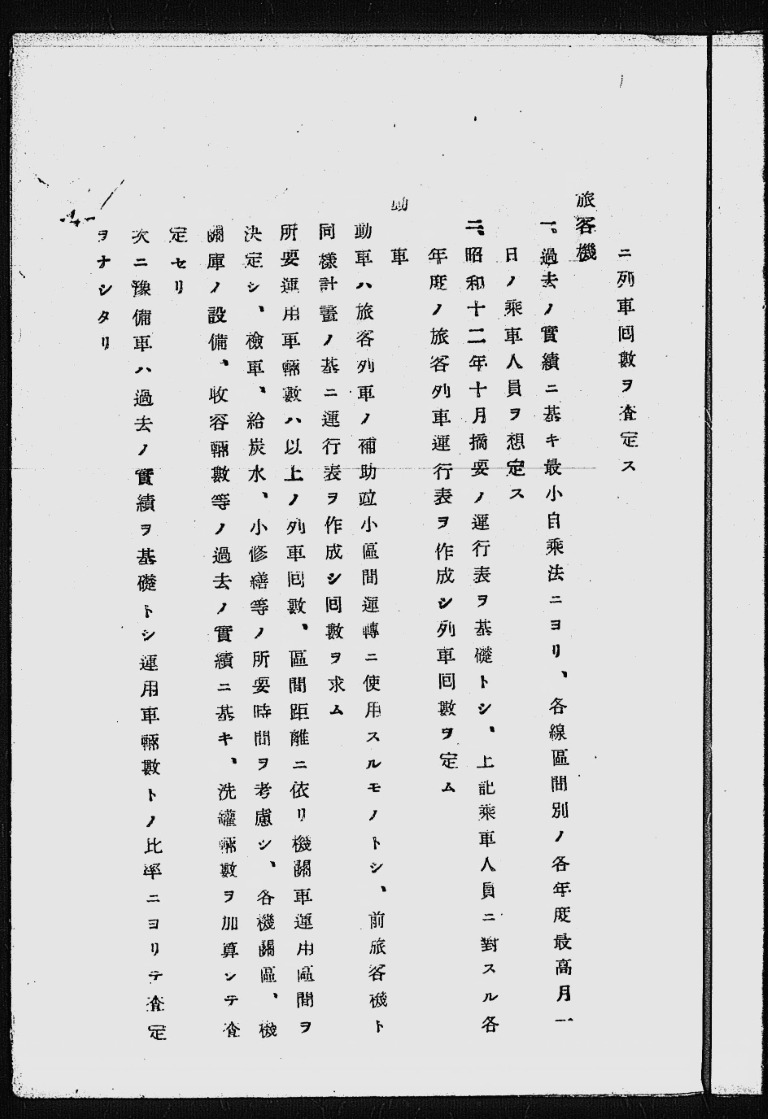 ニ列車囘數ヲ査定ス
旅客機
一、過去ノ實績ニ基キ最小自乘法ニヨリ、各線區間別ノ各年度最高月一
日ノ乘車人員ヲ想定ス
二、昭和十二年十月摘要ノ運行表ヲ基礎トシ、上記乘車人員ニ對スル各
年度ノ旅客列車運行表ヲ作成シ列車囘數ヲ定ム
動車
動車ハ旅客列車ノ補助竝小區間運轉ニ使用スルモノトシ、前旅客機ト
同樣計畫ノ基ニ運行表ヲ作成シ囘數ヲ求ム
所要運用車輛數ハ以上ノ列車囘數、區間距離ニ依リ機關車運用區間ヲ
決定シ、檢車、給炭水、小修繕等ノ所要時間ヲ考慮シ、各機關區、機
關庫ノ設備、收容輛數等ノ過去ノ實績ニ基キ、洗罐輛數ヲ加算シテ査
定セリ
次ニ豫備車ハ過去ノ實績ヲ基礎トシ運用車輛數トノ比率ニヨリテ査定
ヲナシタリ